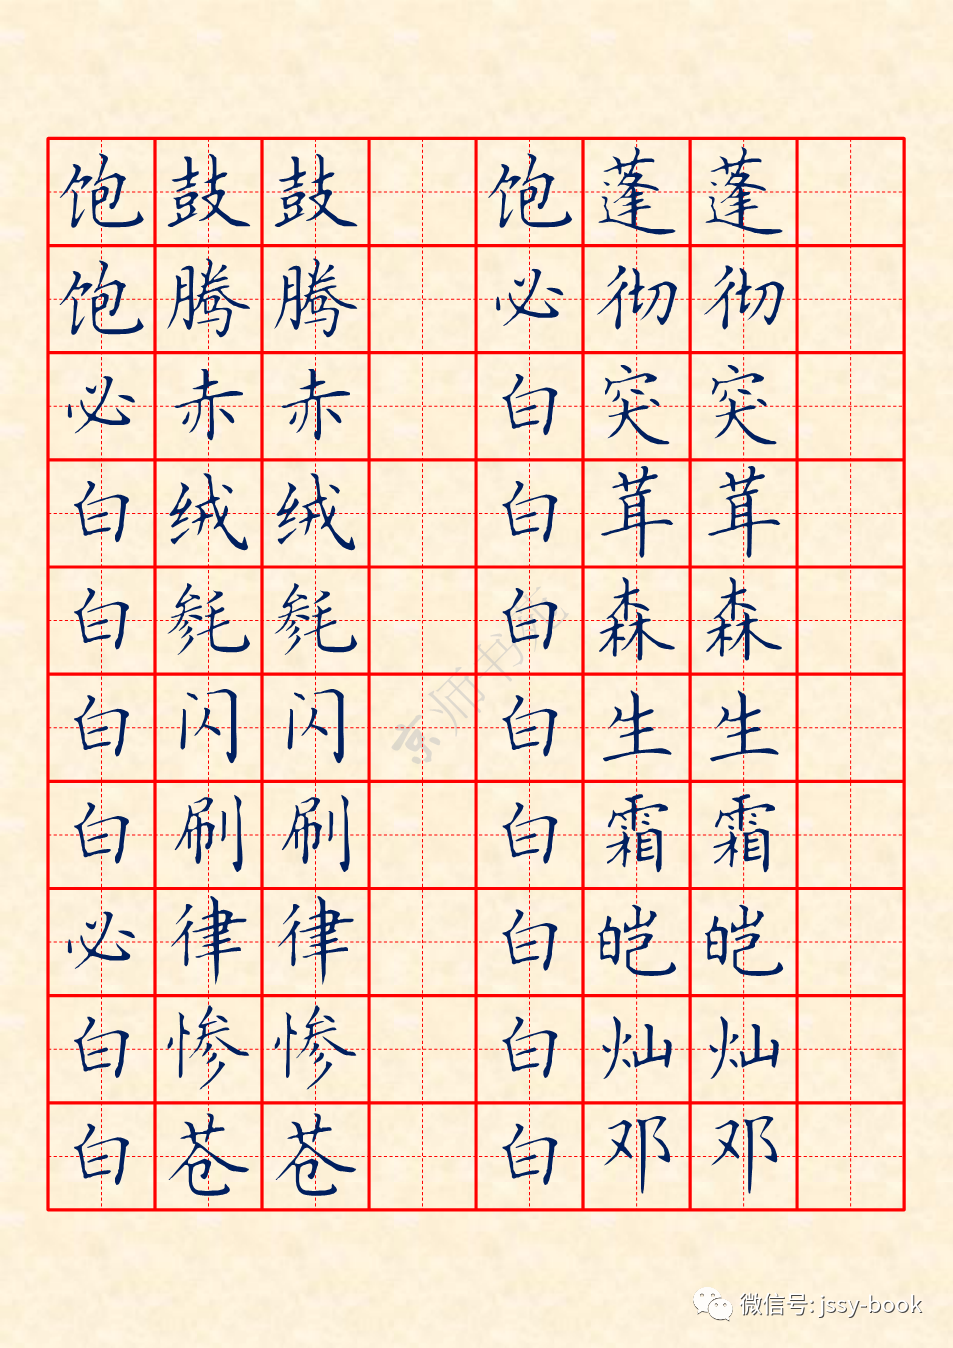 饱鼓鼓 饱蓬蓬
饱腾腾 必彻彻
必赤赤 白突突
白绒绒 白茸茸
白毵毵 白森森
白闪闪 白生生
白刷刷 白霜霜
必律律 白皑皑
白惨惨 白灿灿
白苍苍 白邓邓
京师书苑
微信号: jssy-book